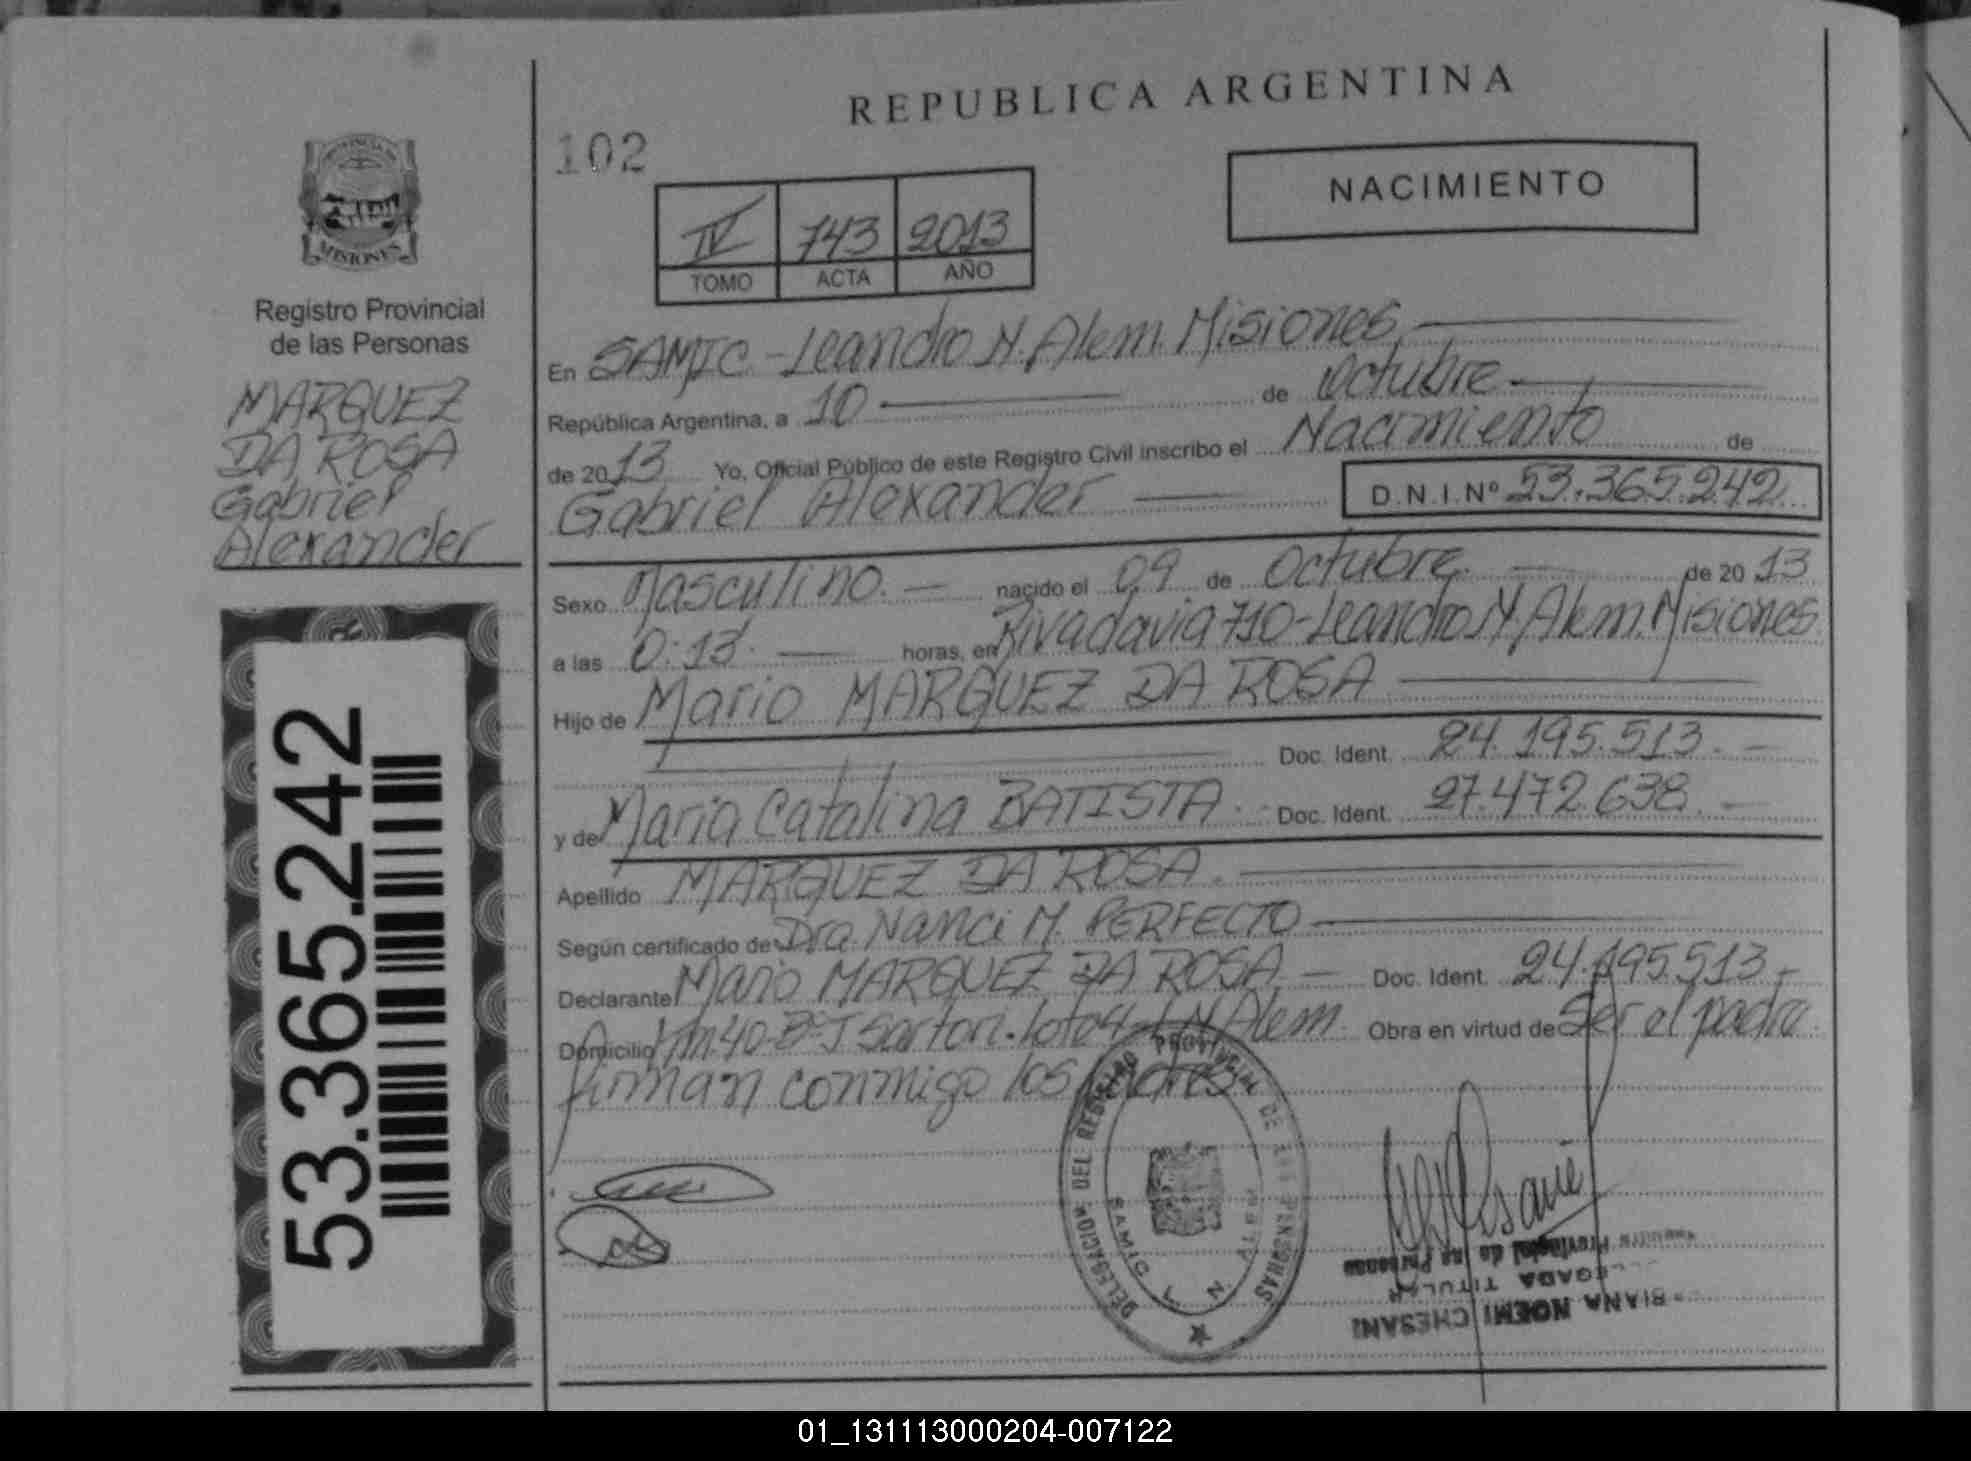 REPUBLICA ARGENTINA
102
NACIMIENTO
IV 743 2013
TOMO ACTA AÑO
MISIONES
Registro Provincial
de las Personas
MARQUEZ
DA ROSA
Gabriel
Alexander
53.365.242
En SAMIC - Leandro N. Alem. Misiones
República Argentina, a 10 de Octubre
de 2013 Yo, Oficial Público de este Registro Civil inscribo el Nacimiento de
Gabriel Alexander D.N.I.Nº 53.365.242
Sexo Masculino. nacido el 09 de Octubre. de 2013
a las 0:13 horas, en Rivadavia 710-Leandro N. Alem. Misiones
Hijo de Mario MARQUEZ DA ROSA
Doc. Ident. 24.195.513.
y de Maria Catalina BATISTA. Doc. Ident. 27.472.638.
Apellido MARQUEZ DA ROSA.
Según certificado de Dra Nanci M. PERFECTO
Declarante Mario MARQUEZ DA ROSA Doc. Ident. 24.195.513
Domicilio Km.40-Bº J Sartori. lote 4-L N Alem. Obra en virtud de Ser el padre.
firman conmigo los padres
DELEGACION DEL REGISTRO PROVINCIAL DE LAS PERSONAS
L. N. ALEM
Registro Provincial de las Personas
DELEGADA TITULAR
NOEMI CHESANI
01_131113000204-007122